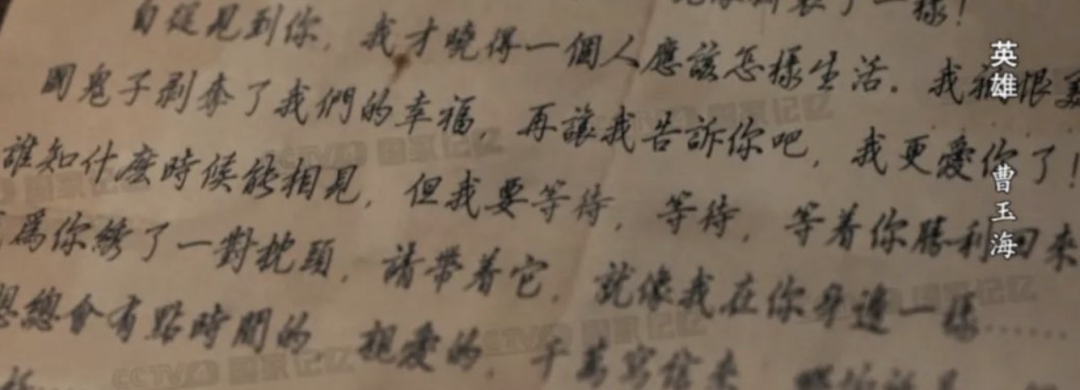 了一樣！
自從見到你，我才曉得一個人應該怎樣生活。我
國鬼子剥奪了我們的幸福，再讓我告訴你吧，我更愛你了！
誰知什麽時候能相見，但我要等待，等待，等着你勝利回來
爲你綉了一對枕頭，請帶着它，就像我在你身邊一樣……
想總會有點時間的 親愛的，千萬寫信來
英雄
曹玉海
CCTV 国家记忆